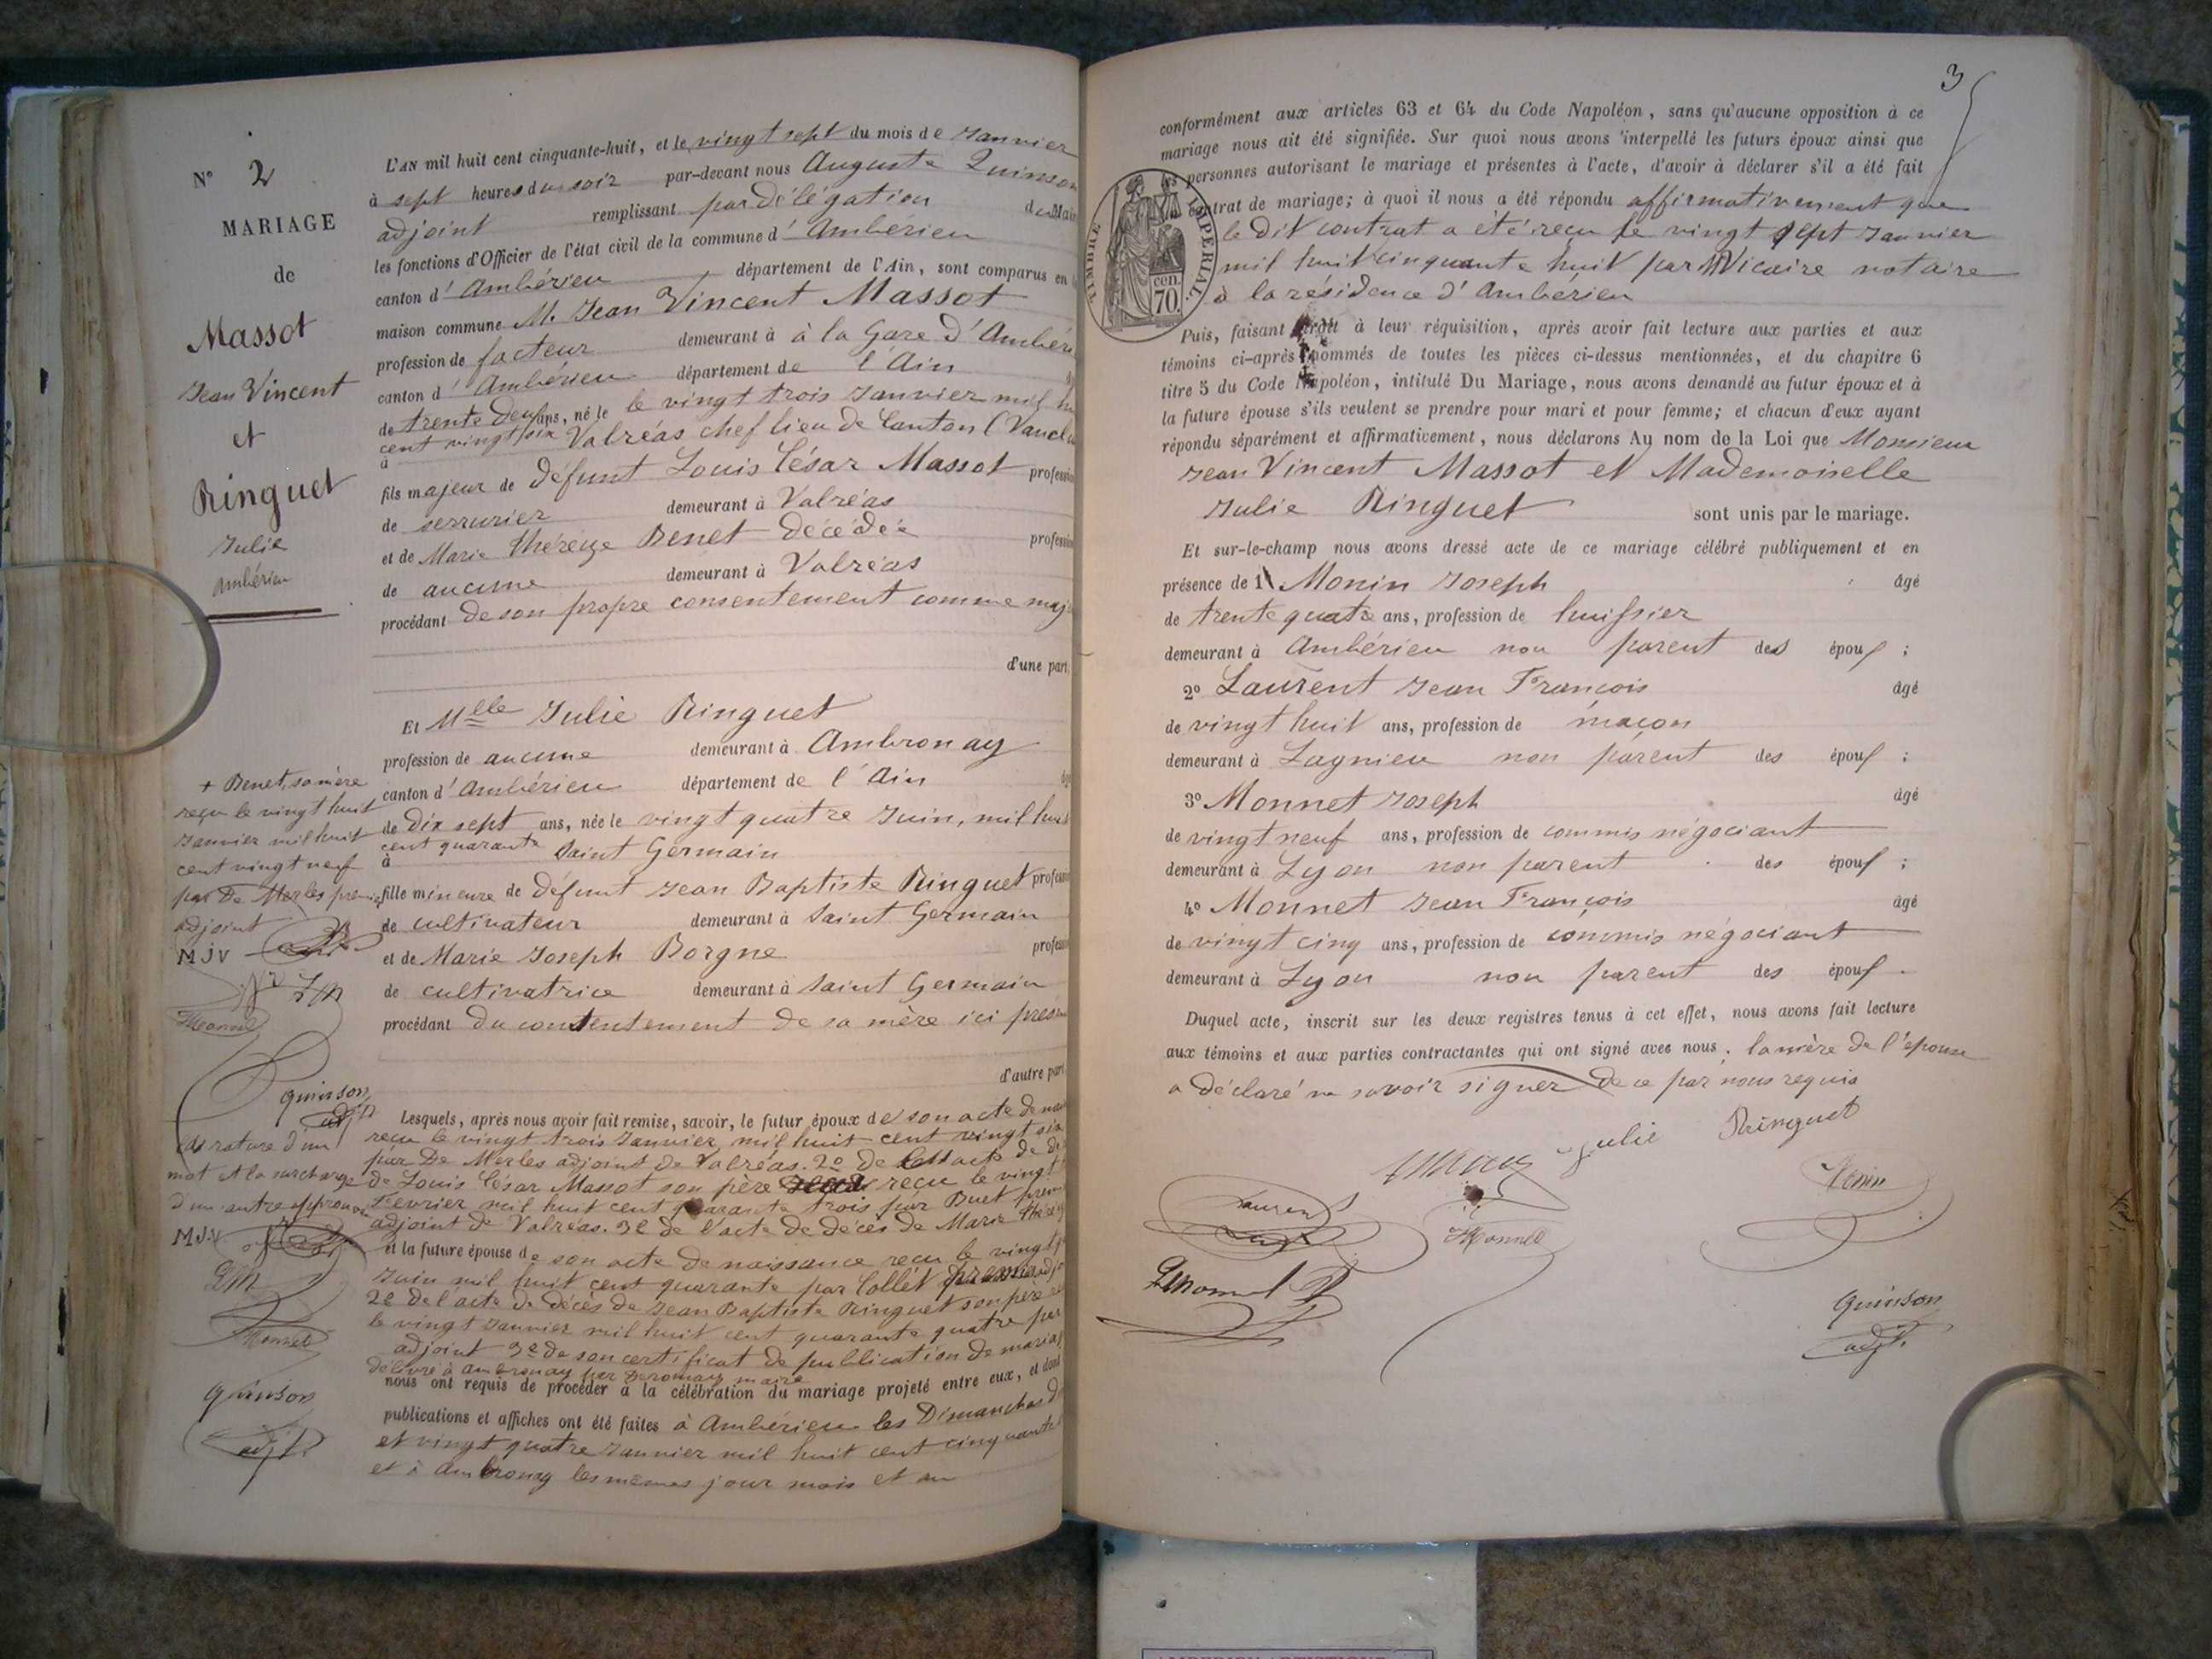 N° 2
MARIAGE
de
Massot
Jean Vincent
et
Ringuet
Julie
Ambérieu
L'AN mil huit cent cinquante-huit, et le vingt sept du mois de Janvier
à sept heures du soir par-devant nous Auguste Quinson
adjoint remplissant par délégation du Maire
les fonctions d'Officier de l'état civil de la commune d' Ambérieu
canton d' Ambérieu département de l'Ain, sont comparus en
maison commune M. Jean Vincent Massot
profession de facteur demeurant à à la Gare d'Ambéri
canton d' Ambérieu département de l'Ain
de trente deux ans, né le le vingt trois Janvier mil hu
cent vingt six
à Valréas chef lieu de Canton (Vauclu
fils majeur de défunt Louis César Massot profession
de serrurier demeurant à Valréas
et de Marie Thérèze Benet décédée profession
de aucune demeurant à Valréas
procédant de son propre consentement comme maje
d'une part,
Et Melle Julie Ringuet
profession de aucune demeurant à Ambronay
canton d' Ambérieu département de l'Ain âgé
de dix sept ans, née le vingt quatre Juin, mil huit
cent quarante
à Saint Germain
fille mineure de défunt Jean Baptiste Ringuet profession
de cultivateur demeurant à Saint Germain
et de Marie Joseph Borgne profession
de cultivatrice demeurant à Saint Germain
procédant du consentement de sa mère ici présen
d'autre part.
Lesquels, après nous avoir fait remise, savoir, le futur époux de son acte de nais
reçu le vingt trois Janvier mil huit cent vingt six
par De Merles adjoint de Valréas. 2º de l'acte de dé
de Louis César Massot son père reçu le vingt
Fevrier mil huit cent quarante trois par Buet prem
adjoint de Valréas. 3e de l'acte de décès de Marie Thérèz
et la future épouse de son acte de naissance reçu le vingt
Juin mil huit cent quarante par Collet premier adjo
2e de l'acte de décès de Jean Baptiste Ringuet son père
le vingt Janvier mil huit cent quarante quatre par
adjoint 3e de son certificat de publication de mariag
délivré à Ambronay par maire
nous ont requis de procéder à la célébration du mariage projeté entre eux, et dont
publications et affiches ont été faites à Ambérieu les Dimanches d
et vingt quatre Janvier mil huit cent cinquante
et à Ambronay les mêmes jour mois et an
+ Benet, sa mère
reçu le vingt huit
Janvier mil huit
cent vingt neuf
par De Merles premier
adjoint
MJV
JM
JMonnet
Quinson
adjt
La rature d'un
mot et la surcharge
d'un autre approuvé
MJV
LM
JMonnet
Quinson
adjt
3
conformément aux articles 63 et 64 du Code Napoléon, sans qu'aucune opposition à ce
mariage nous ait été signifiée. Sur quoi nous avons interpellé les futurs époux ainsi que
les personnes autorisant le mariage et présentes à l'acte, d'avoir à déclarer s'il a été fait
contrat de mariage; à quoi il nous a été répondu affirmativement que
le dit contrat a été reçu le vingt sept Janvier
mil huit cinquante huit par M Vicaire notaire
à la résidence d'Ambérieu
TIMBRE IMPÉRIAL.
cen.
70.
Puis, faisant droit à leur réquisition, après avoir fait lecture aux parties et aux
témoins ci-après nommés de toutes les pièces ci-dessus mentionnées, et du chapitre 6
titre 5 du Code Napoléon, intitulé Du Mariage, nous avons demandé au futur époux et à
la future épouse s'ils veulent se prendre pour mari et pour femme; et chacun d'eux ayant
répondu séparément et affirmativement, nous déclarons Au nom de la Loi que Monsieur
Jean Vincent Massot et Mademoiselle
Julie Ringuet sont unis par le mariage.
Et sur-le-champ nous avons dressé acte de ce mariage célébré publiquement et en
présence de 1º Monin Joseph âgé
de trente quatre ans, profession de huissier
demeurant à Ambérieu non parent des époux ;
2º Laurent Jean François âgé
de vingt huit ans, profession de maçon
demeurant à Lagnieu non parent des époux ;
3º Monnet Joseph âgé
de vingt neuf ans, profession de commis négociant
demeurant à Lyon non parent des époux ;
4º Monnet Jean François âgé
de vingt cinq ans, profession de commis négociant
demeurant à Lyon non parent des époux .
Duquel acte, inscrit sur les deux registres tenus à cet effet, nous avons fait lecture
aux témoins et aux parties contractantes qui ont signé avec nous. la mère de l'épouse
a déclaré ne savoir signer de ce par nous requis
Julie Ringuet
Monin
Laurent
JMonnet
Quinson
adjt.